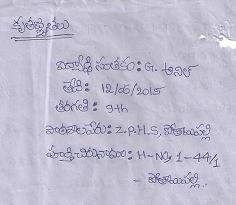 కృతజ్ఞతలు
విద్యార్థి సంతకం: G. అనిల్
తేది: 12/06/2015
తరగతి: 9th
పాఠశాల పేరు: Z.P.H.S, పోతారుపల్లి
పూర్తి చిరునామా: H-NO, 1-44/1
- పోతారుపల్లి.